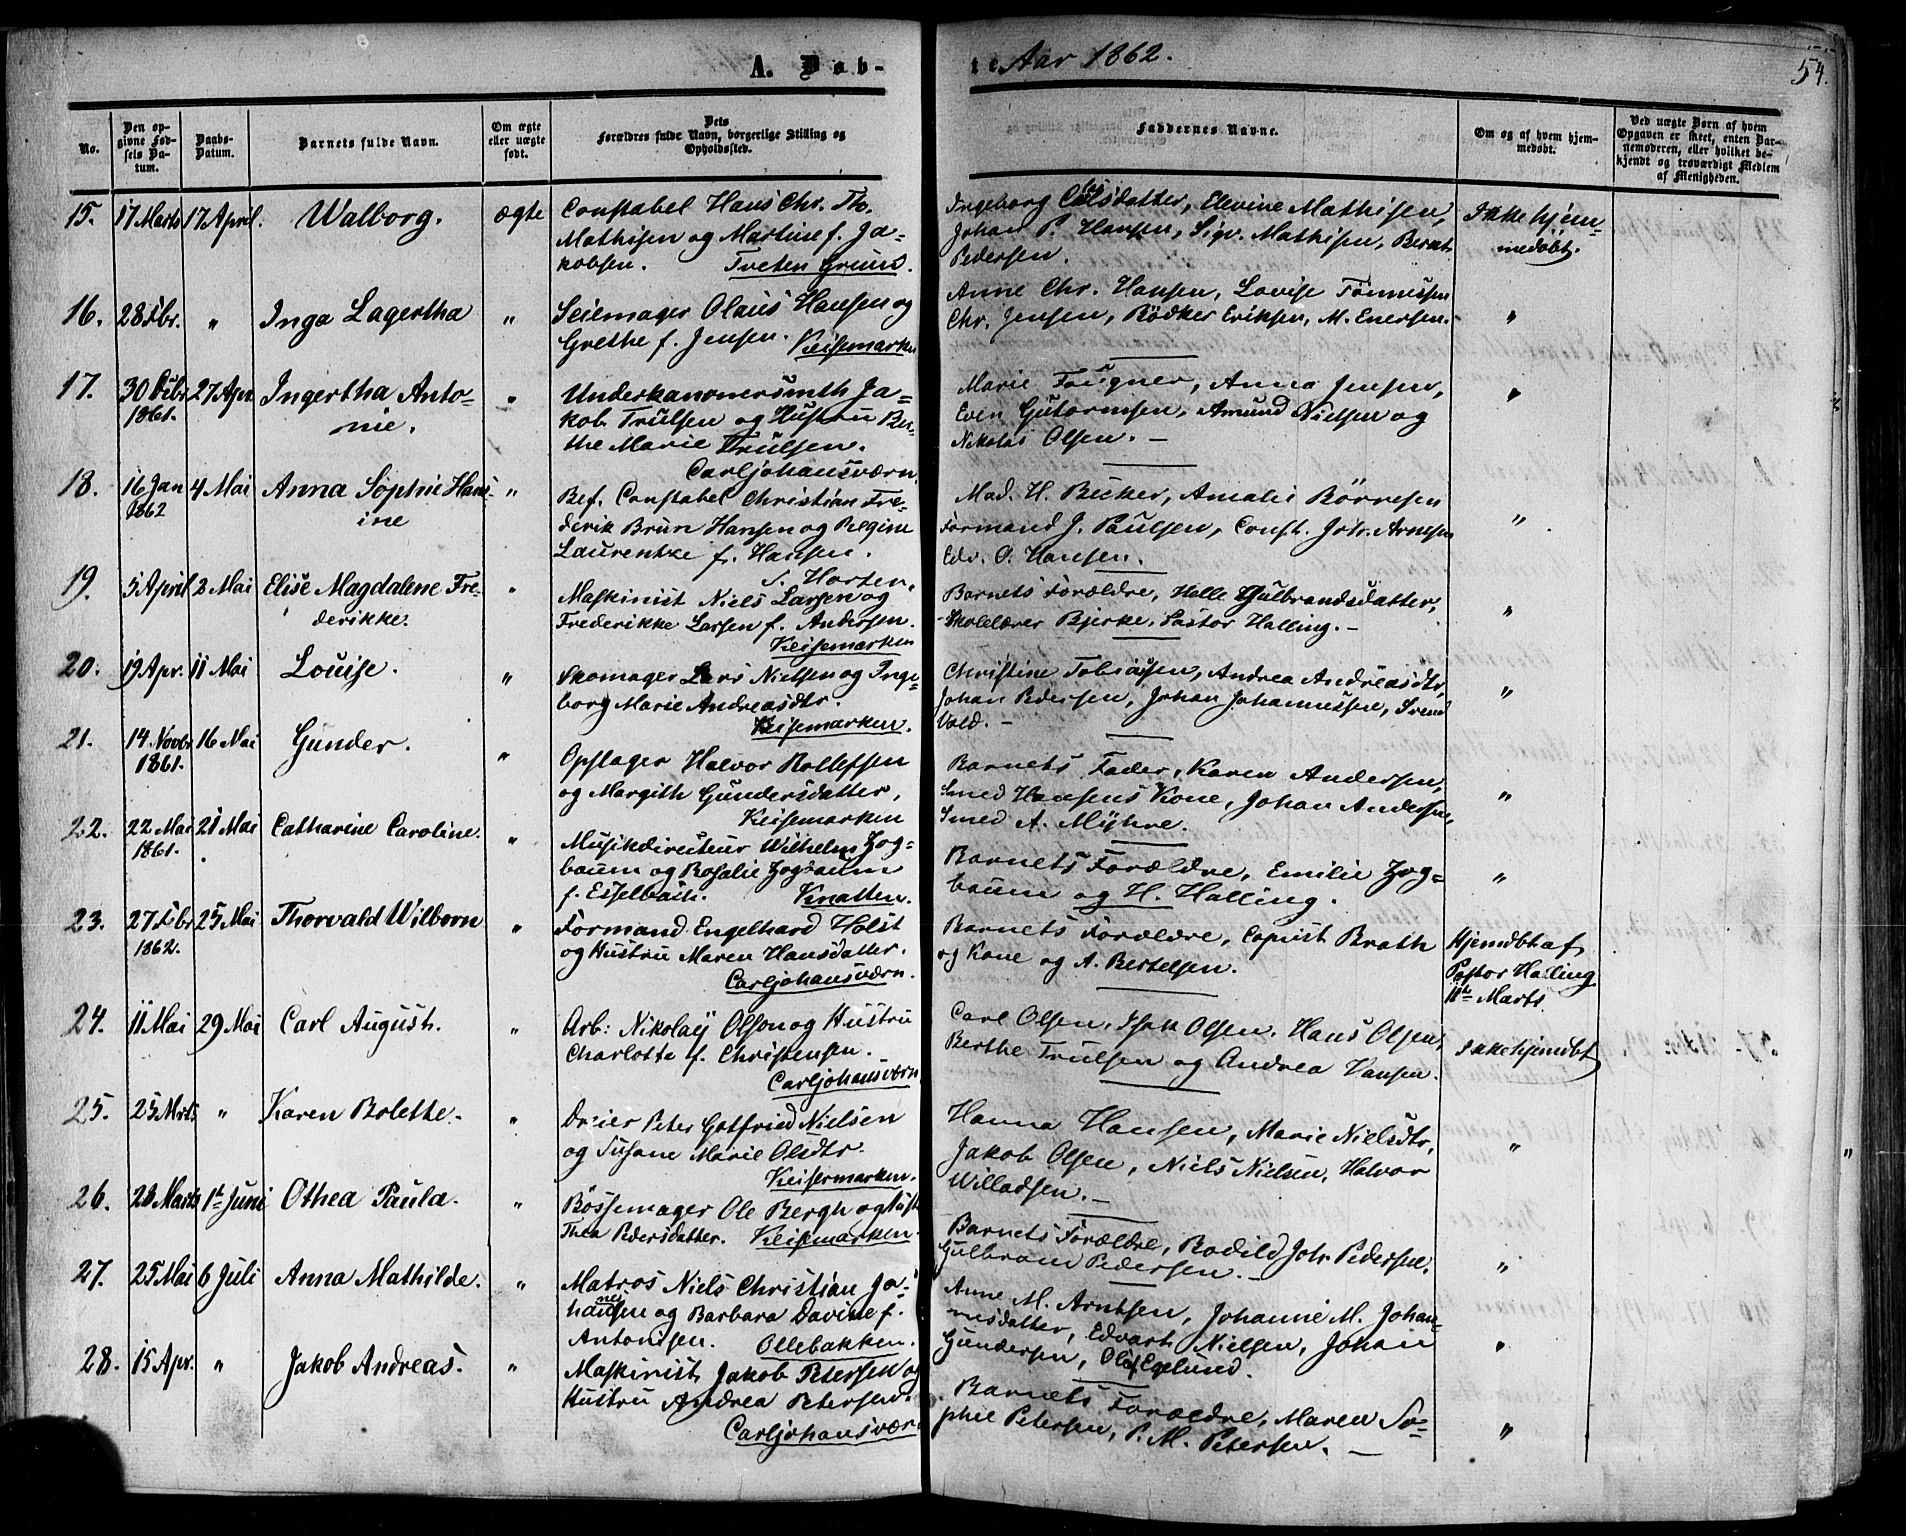 A. Døb-
te Aar 1862.
54.
No.
Den op-
givne Fød-
sels Da-
tum.
Daabs-
Datum.
Barnets fulde Navn.
Om ægte
eller uægte
født.
Dets
Forældres fulde Navn, borgerlige Stilling og
Opholdssted.
Faddernes Navne.
Om og af hvem hjem-
medøbt.
Ved uægte Børn af hvem
Opgaven er skeet, enten Bar-
nemoderen, eller hvilket be-
kjendt og troværdigt Medlem
af Menigheden.
15. 17 Marts 17 April. Walborg. ægte
Constabel Hans Chr. Th.
Mathisen og Martine f. Ja-
kobsen. Tveten Grund.
Ingeborg Olsdatter, Elevine Mathisen,
Johan P. Hansen, Sigv. Mathisen, Bernt
Pedersen.
Ikke hjem-
medøbt.
16. 28 Fbr. " Inga Lagertha "
Seiemager Olaus Hansen og
Grethe f. Jensen. Keisemarken
Anne Chr. Hansen, Lovise Tönnesen
Chr. Jensen, Bödker Eriksen, M. Enersen.
"
17. 30 Debr 27 Apr. Ingertha Anto-
1861. nie. "
Underkanonersmth Ja-
kob Trulsen og Hustru Ber-
the Marie Trulsen.
Carljohansværn
Marie Fougner, Anna Jensen,
Even Gutormsen, Amund Nielsen og
Nikolas Olsen. -
"
18. 16 Jan 4 Mai Anna Sophie Hans-
1862 ine "
Bef. Constabel Christian Fre-
derik Brun Hansen og Regine
Laurentze f. Hansen.
S. Horten.
Mad. H. Becker, Amalie Börresen
Formand J. Paulsen, Const. Joh. Arnesen
Edv. O. Hansen.
"
19. 5 April 2 Mai Elise Magdalene Fre-
derikke. "
Maskinist Niels Larsen og
Frederikke Larsen f. Andersen.
Keisemarken
Barnets Forældre, Helle Gulbrandsdatter,
Skolelærer Bjerke, Pastor Halling. -
"
20. 19 Apr. 11 Mai Louise. "
Skomager Lars Nielsen og Inge-
borg Marie Andreasdtr.
Keisemarken.
Christine Tobiasen, Andrea Andreasdtr,
Johan Pedersen, Johan Johannessen, Svend
Vold. -
"
21. 14 Novbr 16 Mai Gunder. "
1861.
Opslager Halvor Rollefsen
og Margith Gundersdatter,
Keisemarken
Barnets Fader, Karen Andersen,
Smed Hansens Kone, Johan Andersen,
Smed A. Myhre.
"
22. 22 Mai 21 Mai Catharine Caroline. "
1861.
Musikdirecteur Wilhelm Zog-
baum og Rosalie Zogbaum
f. Esselbach. Knatten.
Barnets Forældre, Emilie Zog-
baum og H. Halling.
"
23. 27 Fbr 25 Mai Thorvald Wilborn "
1862.
Formand Engelhard Holst
og Hustru Maren Hansdatter.
Carljohansværn.
Barnets Forældre, Copist Brath
og Kone og A. Bertelsen.
Hjemdbt af
Pastor Halling
11te Marts
24. 11 Mai 29 Mai Carl August. "
Arb: Nikolaij Olson og Hustru
Charlotte f. Christensen.
Carljohansværn
Carl Olsen, Isak Olsen, Hans Olsen,
Berthe Trulsen og Andrea Hansen.
Ikke hjemdbt
25. 25 Mrts " Karen Bolette. "
Dreier Peter Gotfried Nielsen
og Susane Marie Olsdtr.
Keisermarken.
Hanna Hansen, Marie Nielsdtr,
Jakob Olsen, Niels Nielsen, Halvor
Willadsen. -
"
26. 28 Marts 1te Juni Othea Paula. "
Bössemager Ole Bergh og Hust
Thea Pedersdatter. Keisemarken
Barnets Forældre, Bodild Joh. Pedersen,
Gulbram Pedersen. -
"
27. 25 Mai 6 Juli Anna Mathilde. "
Matros Niels Christian Jo-
hannesen og Barbara Davine f.
Antonisen. Ollebakken.
Anne M. Arntsen, Johanne M. Johan-
nesdatter, Edvart Nielsen, Johan
Gundersen, Olaf Egelund.
"
28. 15 Apr. " Jakob Andreas. "
Maskinist Jakob Petersen og
Hustru Andrea Petersen.
Carljohansvær
Barnets Forældre, Maren So-
phie Petersen, P. M. Petersen. -
"